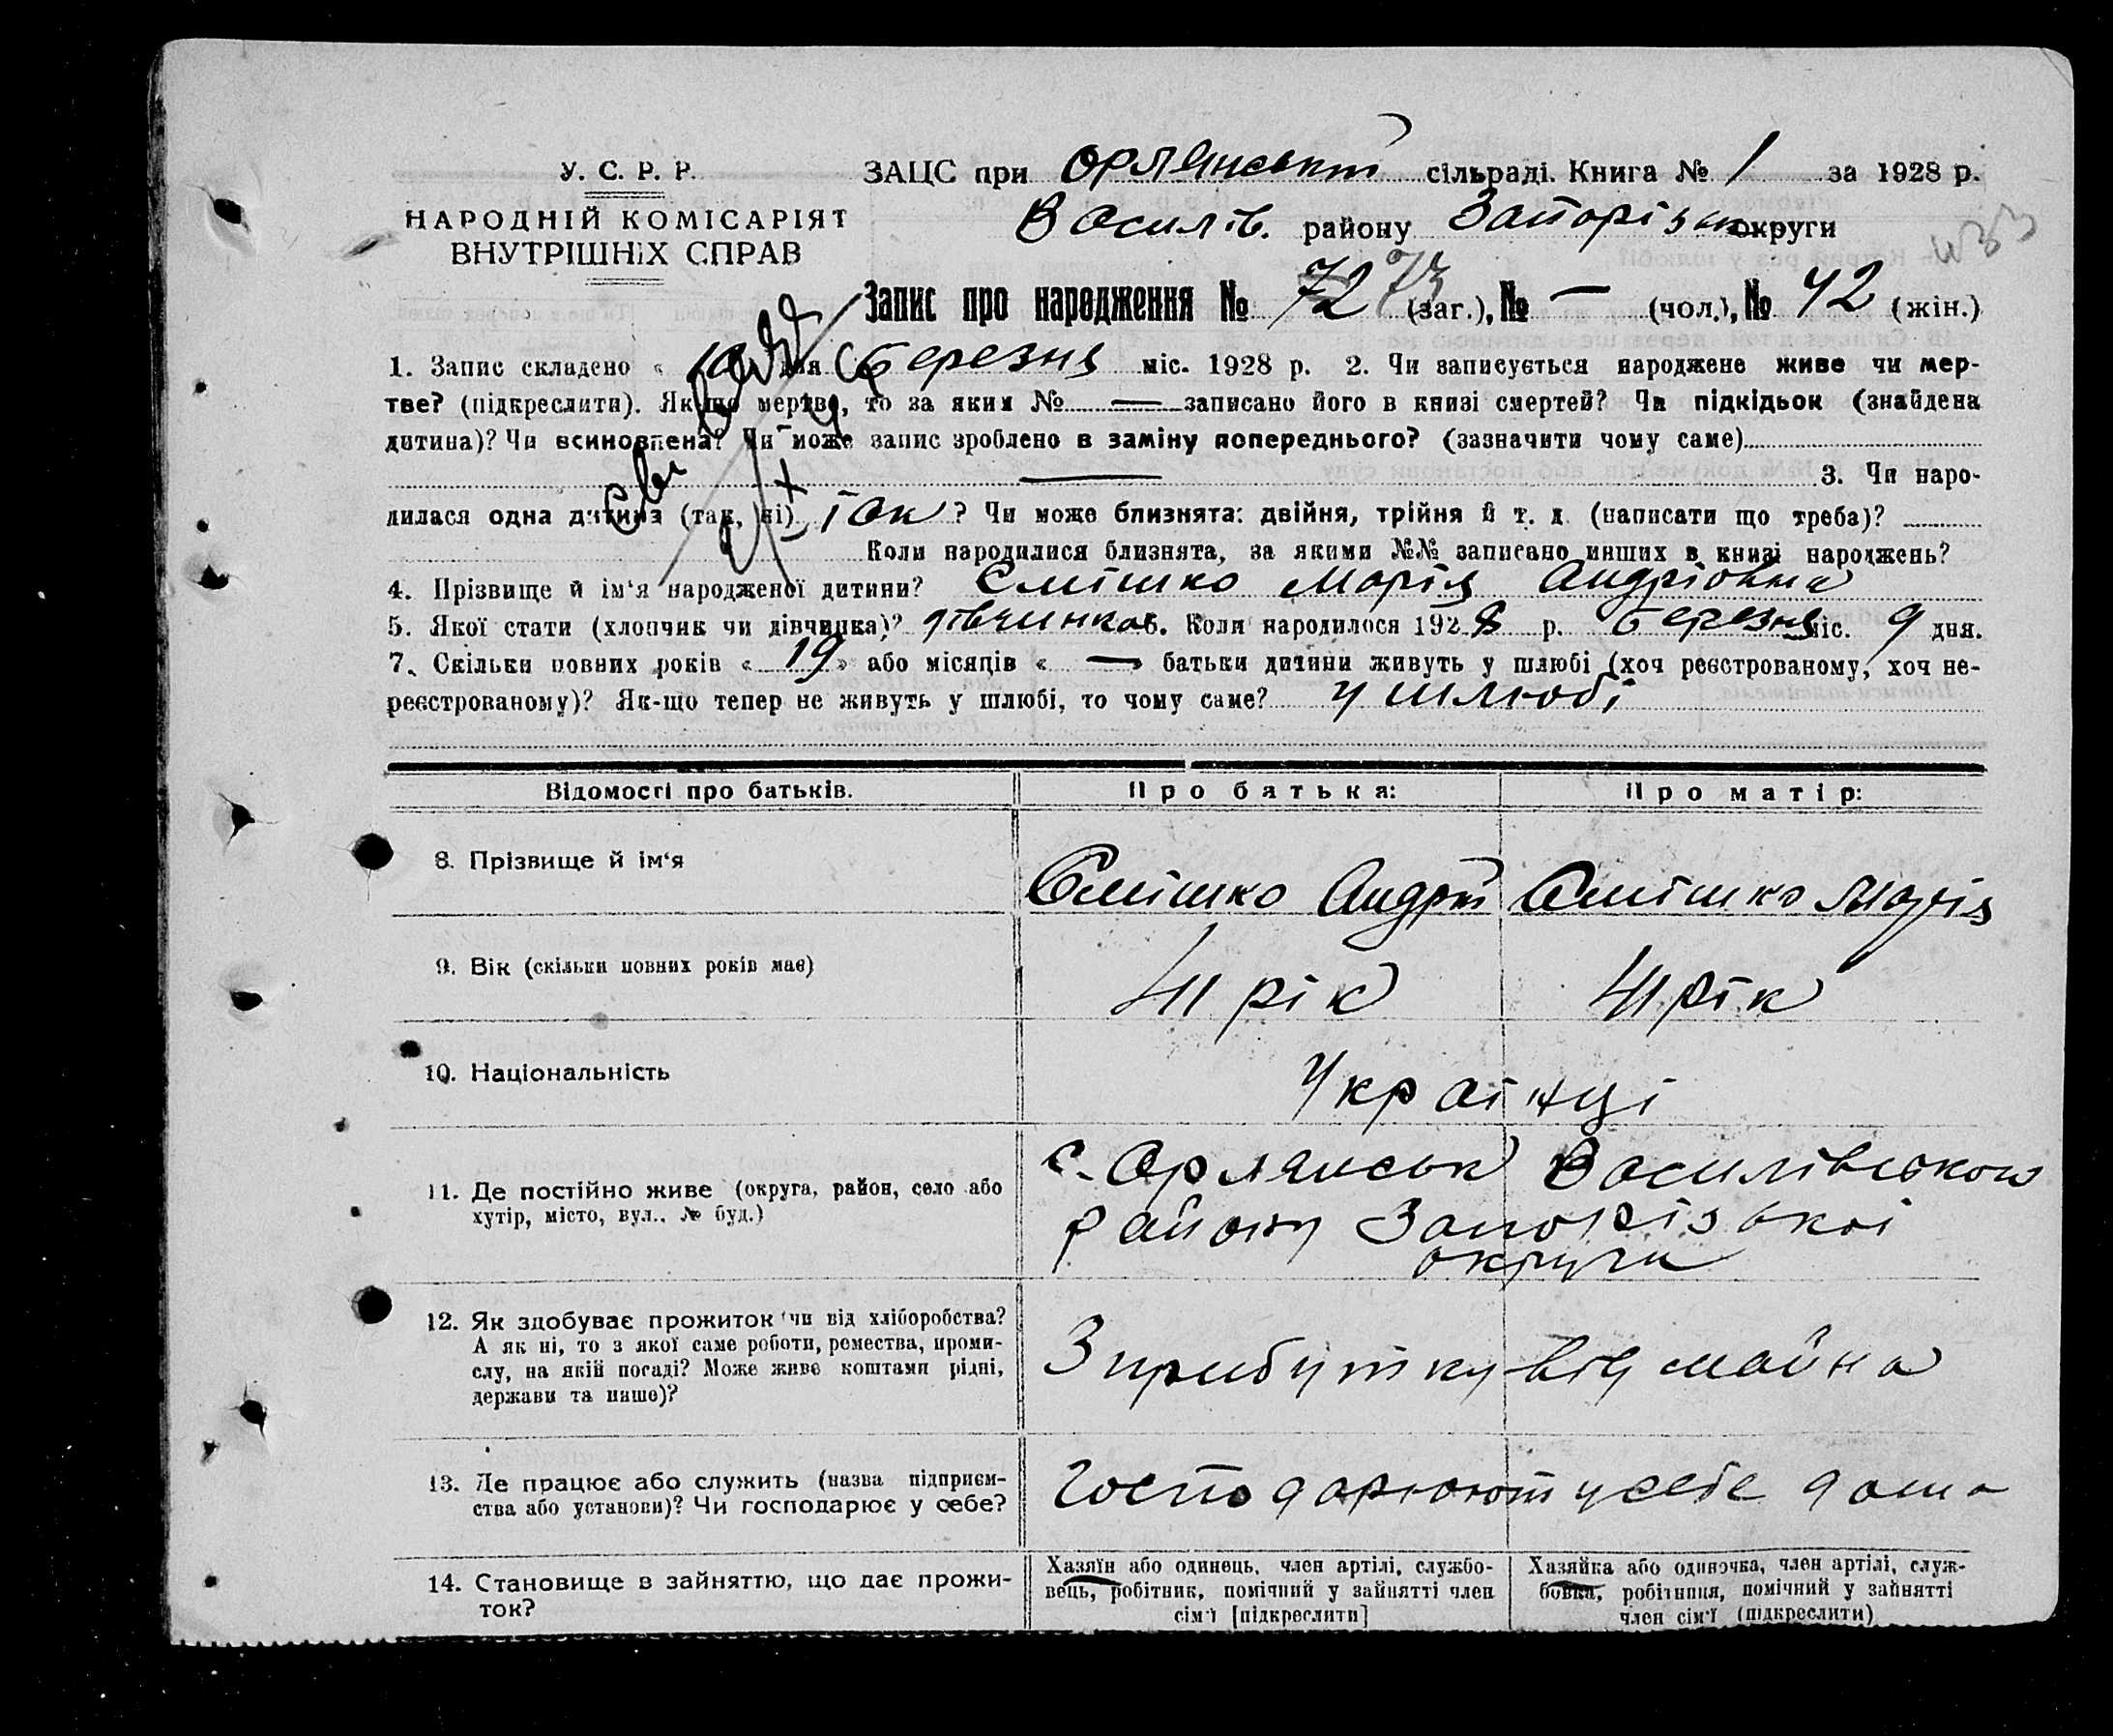 У. С. Р. Р.
НАРОДНІЙ КОМІСАРІЯТ
ВНУТРІШНІХ СПРАВ
ЗАЦС при Орлянській сільраді. Книга № 1 за 1928 р.
Василів. району Запорізьк округи
Запис про народження № 72 73 (заг.), № — (чол.), № 42 (жін.)
1. Запис складено « 10 дня березня міс. 1928 р. 2. Чи записується народжене живе чи мер-
тве? (підкреслити). Якщо мертве, то за яким № — записано його в книзі смертей? Чи підкідьок (знайдена
дитина)? Чи всиновлена? Чи може запис зроблено в заміну попереднього? (зазначити чому саме)
— 3. Чи наро-
дилася одна дитина (так, ні) так ? Чи може близнята: двійня, трійня й т. д. (написати що треба)?
Коли народилися близнята, за якими №№ записано инших в книзі народжень?
4. Прізвище й ім‘я народженої дитини? Смішко Марія Андріовна
5. Якої стати (хлопчик чи дівчинка)? дівчинка 6. Коли народилося 1928 р. березня міс. 9 дня.
7. Скільки повних років « 19 » або місяців « — » батьки дитини живуть у шлюбі (хоч реєстрованому, хоч не-
реєстрованому)? Як-що тепер не живуть у шлюбі, то чому саме? у шлюбі
Відомості про батьків. Про батька: Про матір:
8. Прізвище й ім‘я Смішко Андрій Смішко Марія
9. Вік (скільки повних років має) 41 рік 41 рік
10. Національність Українці
11. Де постійно живе (округа, район, село або
хутір, місто, вул., № буд.)
с. Орлянськ Василівського
району Запорізької
округи
12. Як здобуває прожиток чи від хліборобства?
А як ні, то з якої саме роботи, ремества, проми-
слу, на якій посаді? Може живе коштами рідні,
держави та инше)?
З прибутку від майна
13. Де працює або служить (назва підприєм-
ства або установи)? Чи господарює у себе?
Господарюють у себе дома
14. Становище в зайняттю, що дає прожи-
ток?
Хазяїн або одинець, член артілі, службо-
вець, робітник, помічний у зайнятті член
сім‘ї [підкреслити]
Хазяйка або одиночка, член артілі, служ-
бовка, робітниця, помічний у зайнятті
член сім‘ї (підкреслити)